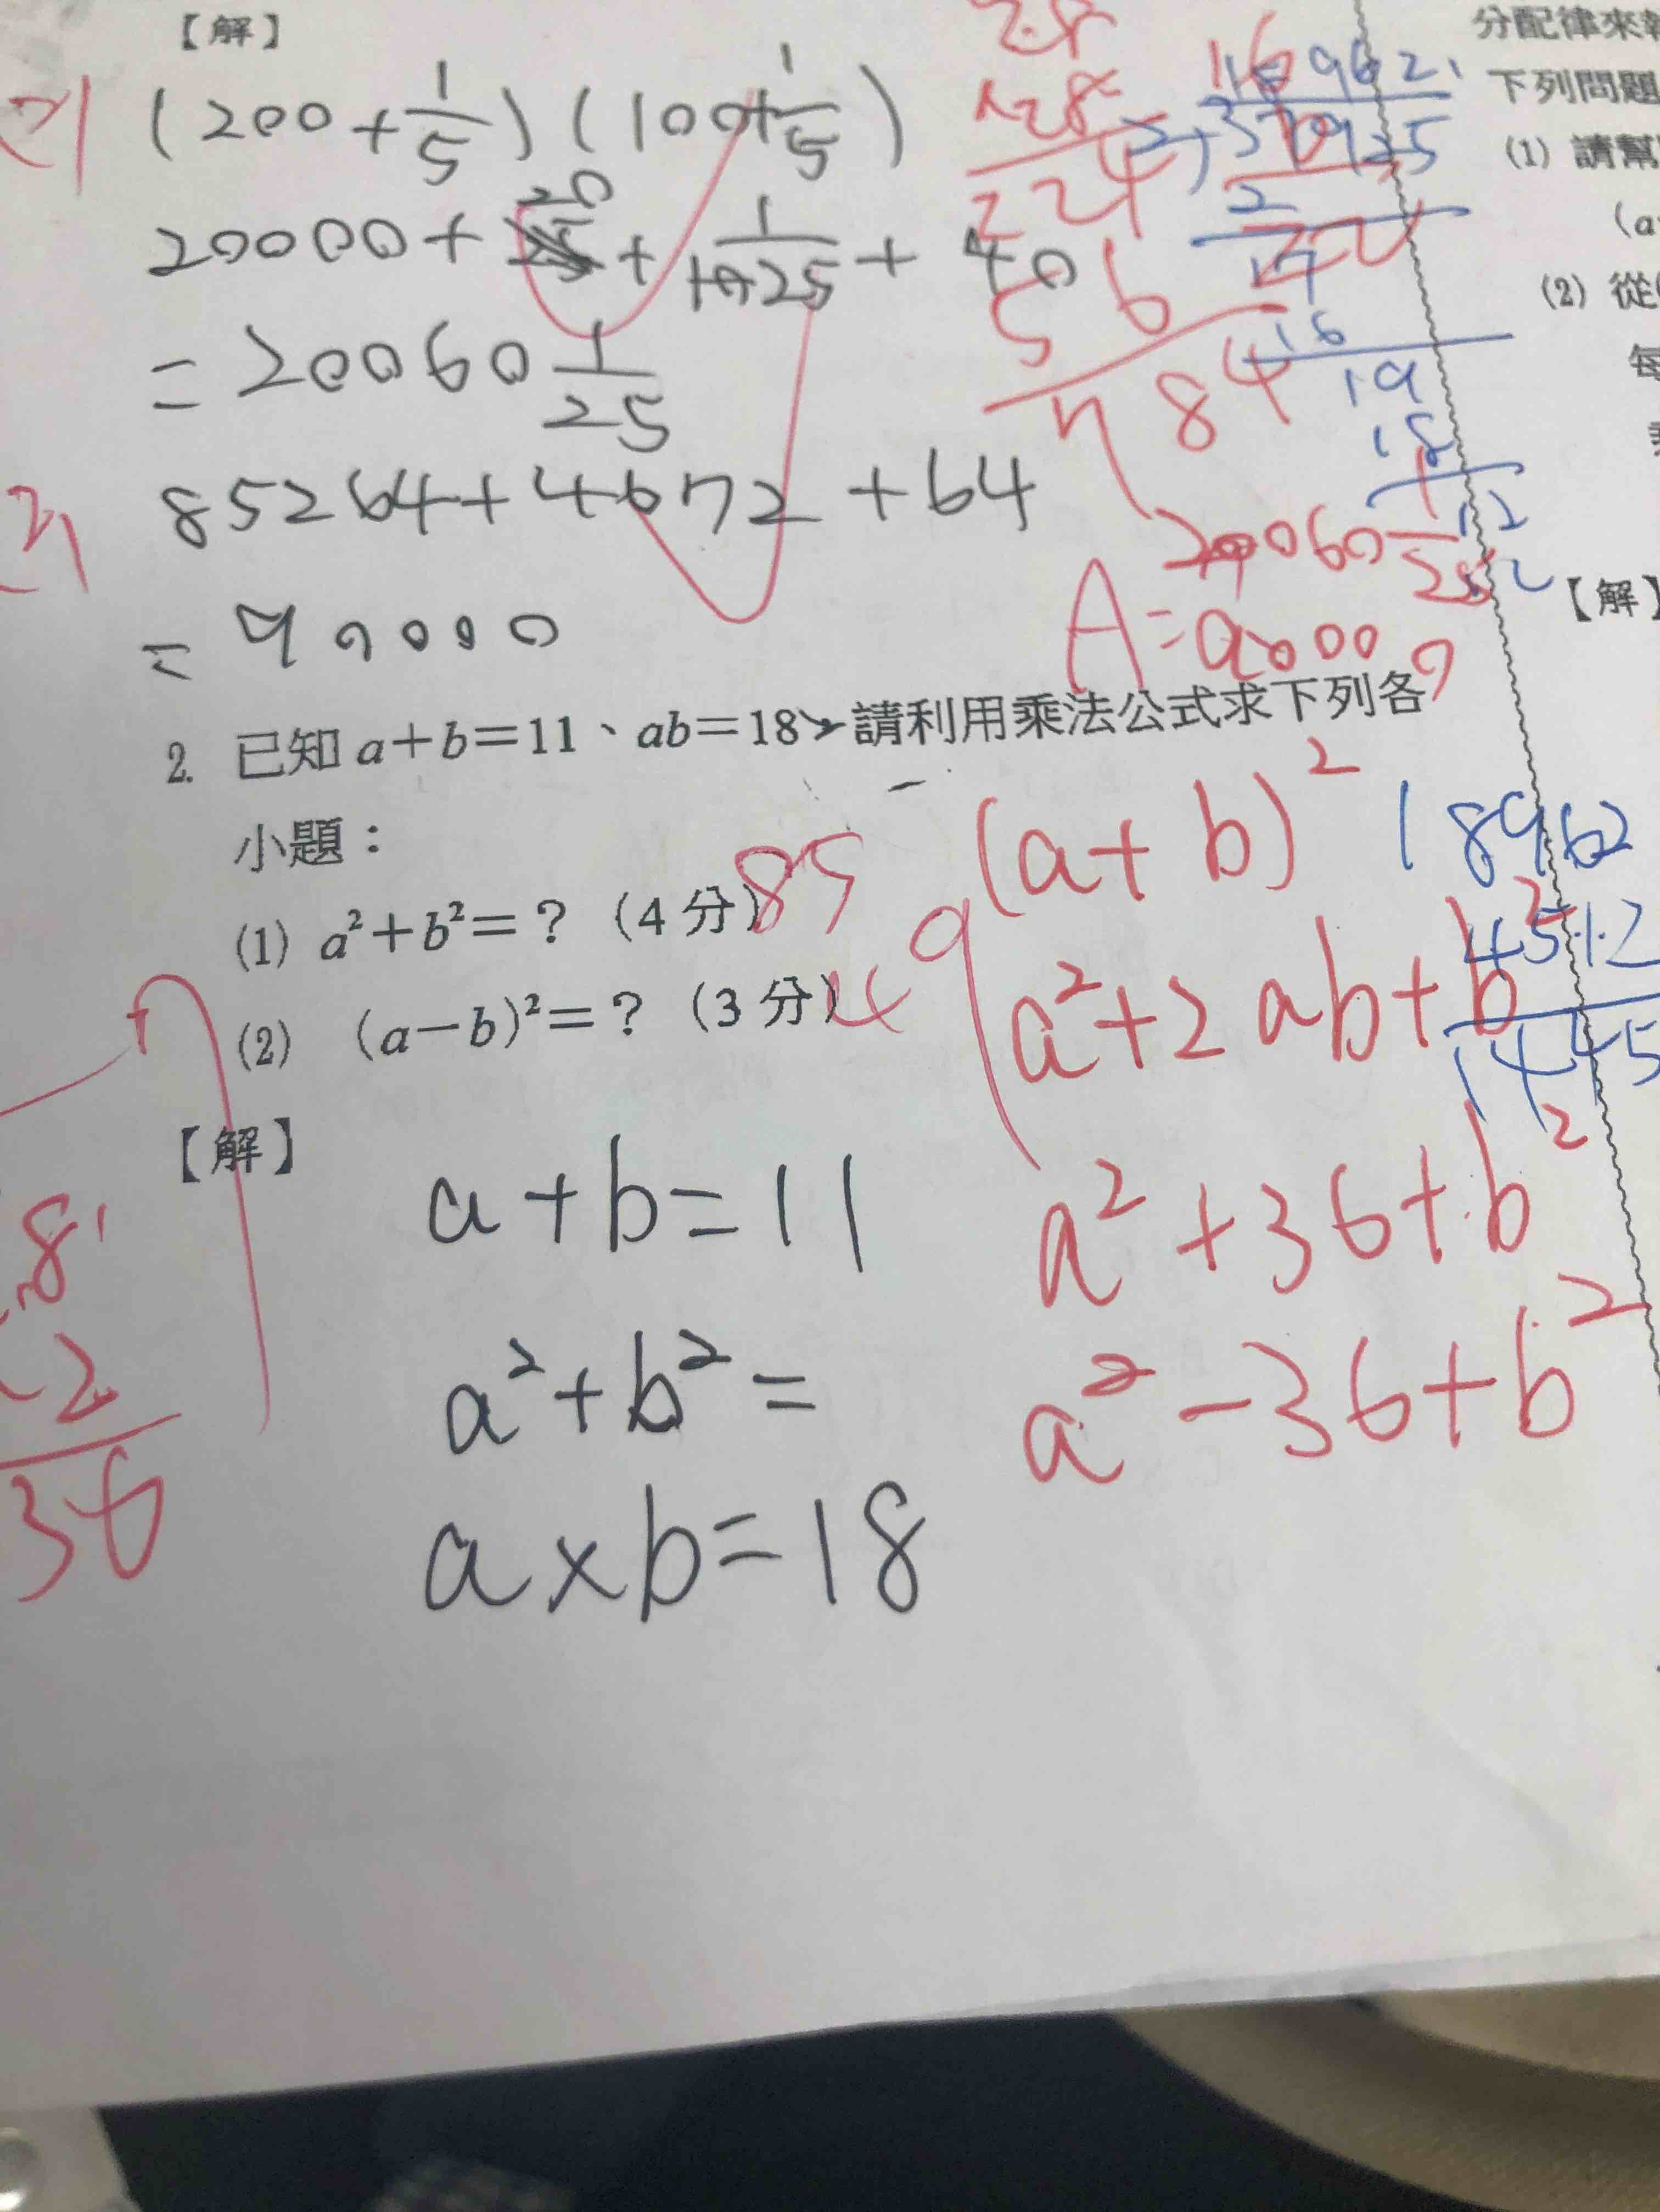 【解】
(200+1/5)(100+1/5)
20000+20+1/25+40
=20060 1/25
85264+4672+64
=90000
20060 1/25
A=90000
2. 已知 a+b=11、ab=18，請利用乘法公式求下列各
小題：
(1) a²+b²=？（4 分）85
(2) (a−b)²=？（3 分）49
【解】
a+b=11
a²+b²=
a×b=18
(a+b)²
a²+2ab+b²
a²+36+b²
a²-36+b²
28
×28
224
56
784
18962
37925
2
17
16
19
18
12
12
18962
4512
1445
2
36
分配律來
下列問題
(1) 請幫
(a
(2) 從
每
【解】